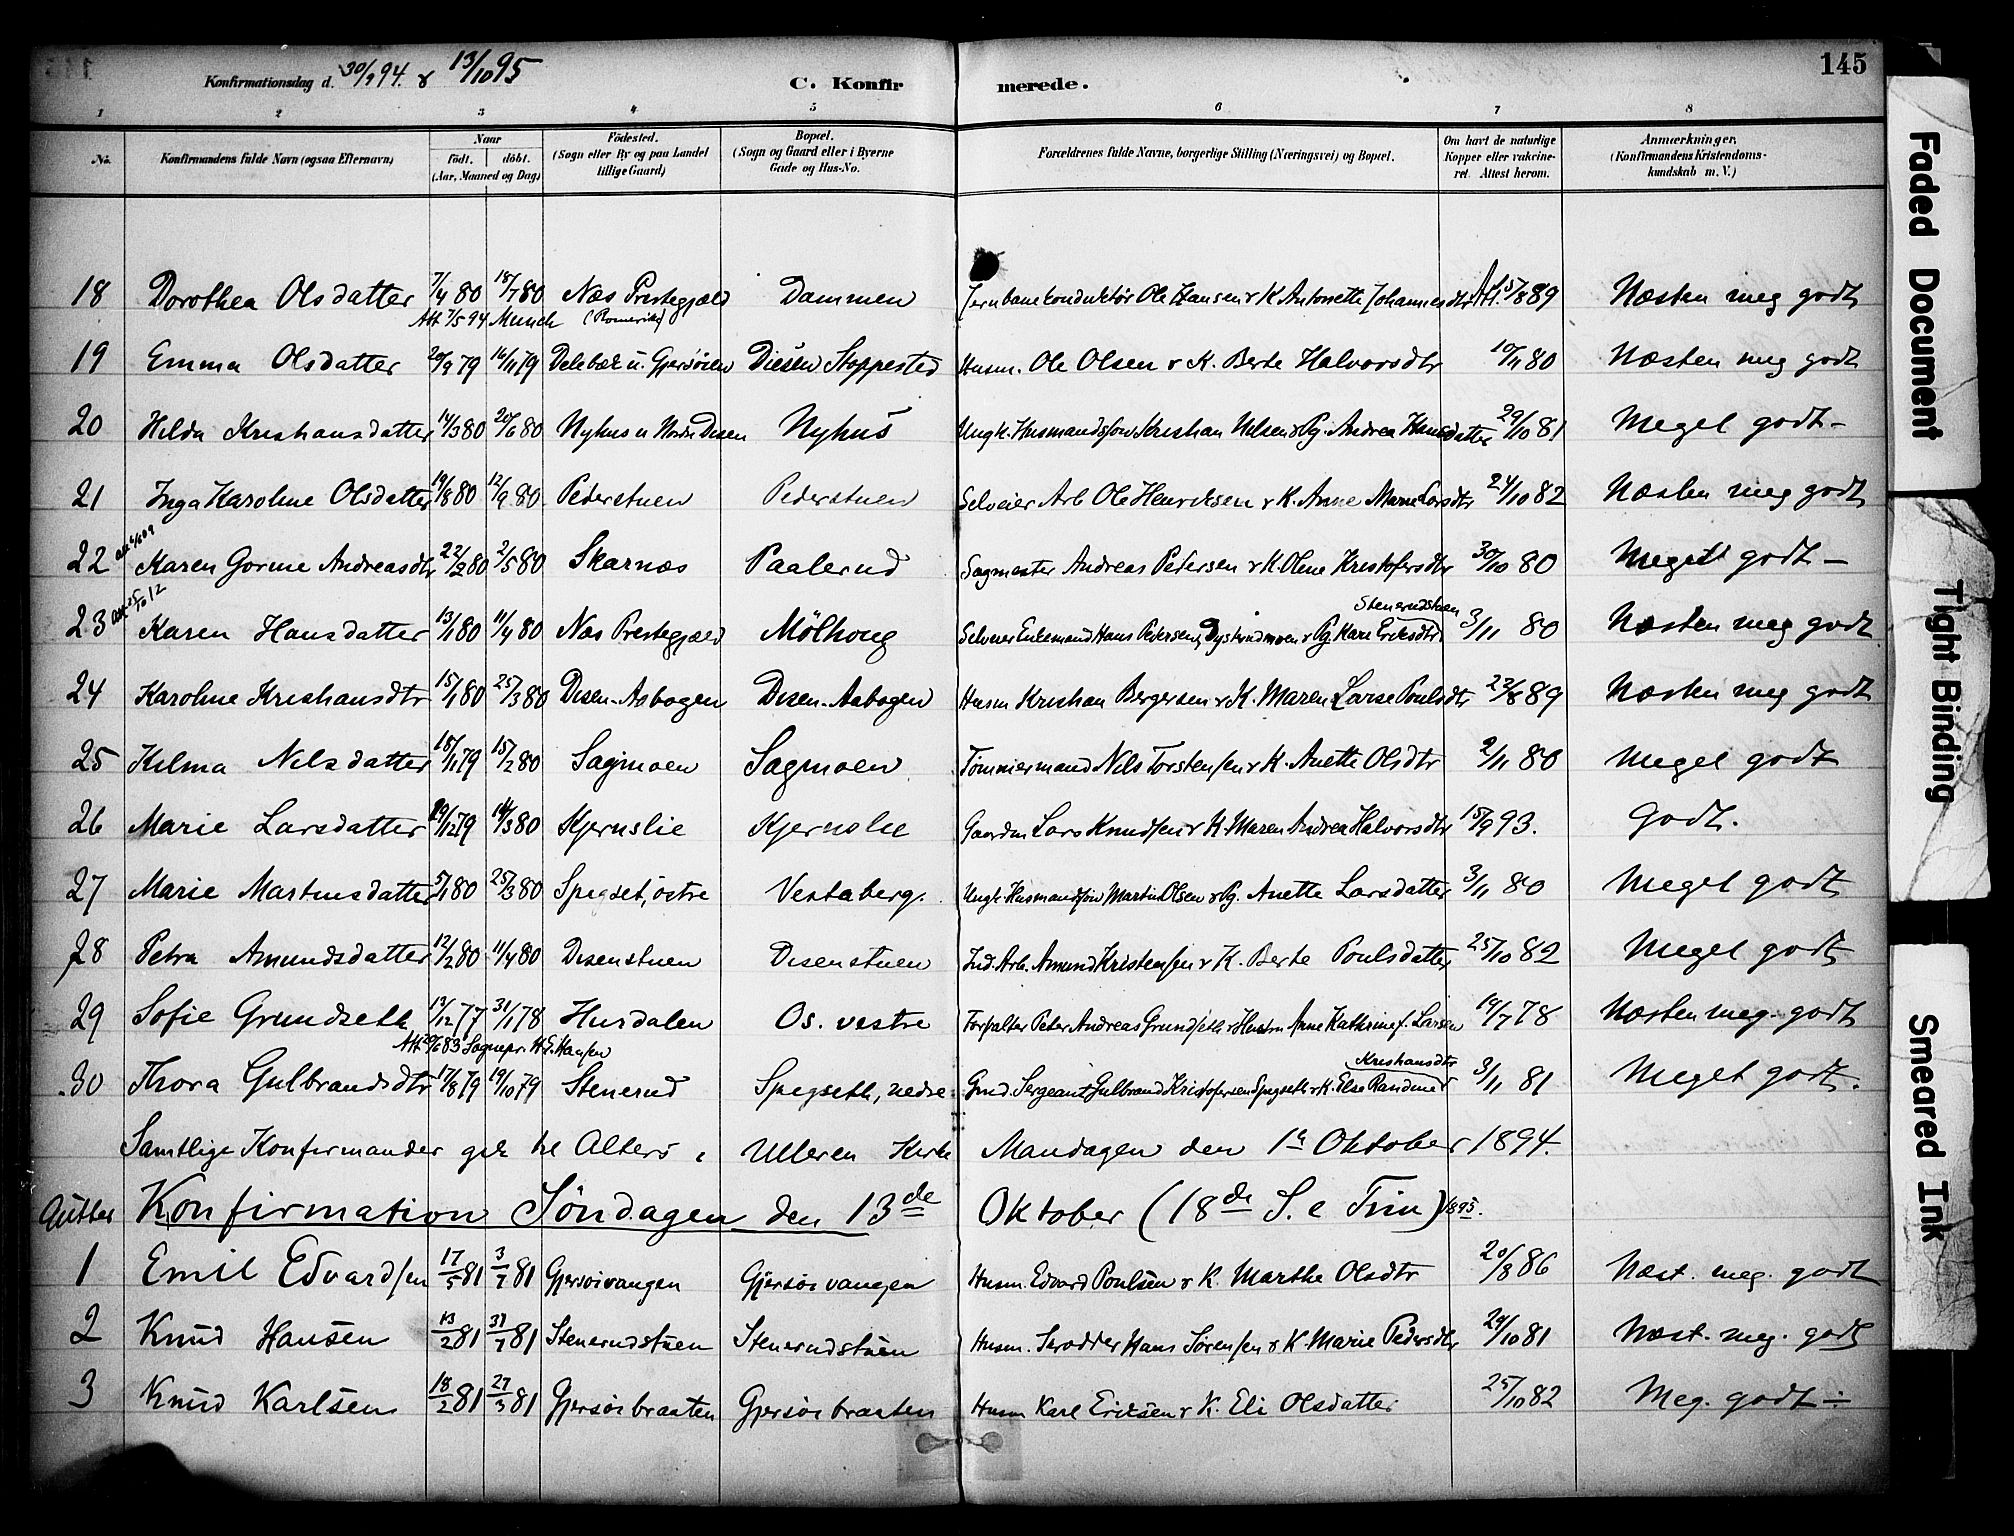 Konfirmationsdag d. 30/9 94. & 13/10 95 C. Konfirmerede. 145
1 2 3 4 5 6 7 8
No. Konfirmandens fulde Navn (ogsaa Efternavn) Naar født. døbt. (Aar, Maaned og Dag) Fødested. (Sogn eller By og paa Landet tillige Gaard) Bopæl. (Sogn og Gaard eller i Byerne Gade og Hus-No. Forældrenes fulde Navne, borgerlige Stilling (Næringsvei) og Bopæl. Om havt de naturlige Kopper eller vakcineret. Attest herom. Anmærkninger. (Konfirmandens Kristendomskundskab m. V.)
18 Dorothea Olsdatter 7/4 80 18/7 80 Næs Prestegjæld Dammen Jernbanekonduktør Ole Hansen & K. Antonette Johannesdtr Att. 15/8 89 Næsten meg godt
Att 7/5 94 Munch (Romerike)
19 Emma Olsdatter 20/9 79 16/11 79 Delebæk u. Gjersöien Disen Stoppested Husm. Ole Olsen & K. Berte Halvorsdtr 10/11 80 Næsten meg godt
20 Hilda Kristiansdatter 14/3 80 20/6 80 Nyhus u Nordre Disen Nyhus Ungk. Husmandssøn Kristian Nilsen & Pg. Andrea Hansdatter 29/10 81 Meget godt –
21 Inga Karoline Olsdatter 19/8 80 12/9 80 Pederstuen Pederstuen Selveier Arb Ole Henriksen & K. Anne Marie Larsdtr 24/10 82 Næsten meg godt
22 Karen Gorine Andreasdtr 22/2 80 2/5 80 Skarnæs Paalerud Sagmester Andreas Petersen & K. Oline Kristofersdtr 30/10 80 Meget godt –
23 Karen Hansdatter 13/1 80 11/4 80 Næs Prestegjæld Mölhoug Selveier Enkemand Hans Pedersen, Dystrudmoen & Pg. Kari Eriksdtr Stenerudstuen 3/11 80 Næsten meg godt
24 Karoline Kristiansdtr 15/1 80 25/3 80 Disen-Aasbogen Disen-Aasbogen Husm Kristian Bergersen & K. Maren Larse Poulsdtr 22/8 89 Næsten meg godt
25 Kilma Nilsdatter 18/11 79 15/2 80 Sagmoen Sagmoen Tömmermand Nils Torstensen & K. Anette Olsdtr 2/11 80 Meget godt
26 Marie Larsdatter 29/12 79 14/3 80 Kjernslie Kjernslie Gaardm Lars Knudsen & K. Maren Andrea Halvorsdtr 15/9 93. Godt.
27 Marie Martinsdatter 5/1 80 25/3 80 Spigset, östre Vestaberg. Ungk. Husmandssøn Martin Olsen & Pg. Anette Larsdatter 3/11 80 Meget godt
28 Petra Amundsdatter 12/2 80 11/4 80 Disenstuen Disenstuen Ind. Arb. Amund Kristensen & K. Berte Poulsdatter 25/10 82 Meget godt
29 Sofie Grundseth 13/12 77 31/1 78 Husdalen Os. vestre Forpalter Peter Andreas Grundseth & Hustru Anne Kathrine f. Larsen 19/7 78 Næsten meg. godt
Att 20/6 83 Sognepr. H. G. Hansen
30 Thora Gulbrandsdtr 17/8 79 19/10 79 Stenerud Spigseth, nedre Gmd. Sergeant Gulbrand Kristofersen Spigseth & K. Else Randine Kristiansdtr 3/11 81 Meget godt.
Samtlige Konfirmander gik til Alters i Ulleren Kirke Mandagen den 1ste Oktober 1894.
Gutter Konfirmation Söndagen den 13de Oktober (18de S. e Trin) 1895.
1 Emil Edvardsen 17/5 81 3/7 81 Gjersöivangen Gjersöivangen Husm. Edvard Poulsen & K. Marthe Olsdtr 20/8 86 Næst. meg. godt
2 Knud Hansen 13/2 81 31/7 81 Stenerudstuen Stenerudstuen Husm. Skrædder Hans Sörensen & K. Marie Pedersdtr 29/10 81 Næst. meg. godt
3 Knud Karlsen 18/2 81 27/3 81 Gjersöibraaten Gjersöibraaten Husm Karl Eriksen & K. Eli Olsdatter 25/10 82 Meg. godt ÷
Faded Document
Tight Binding
Smeared Ink